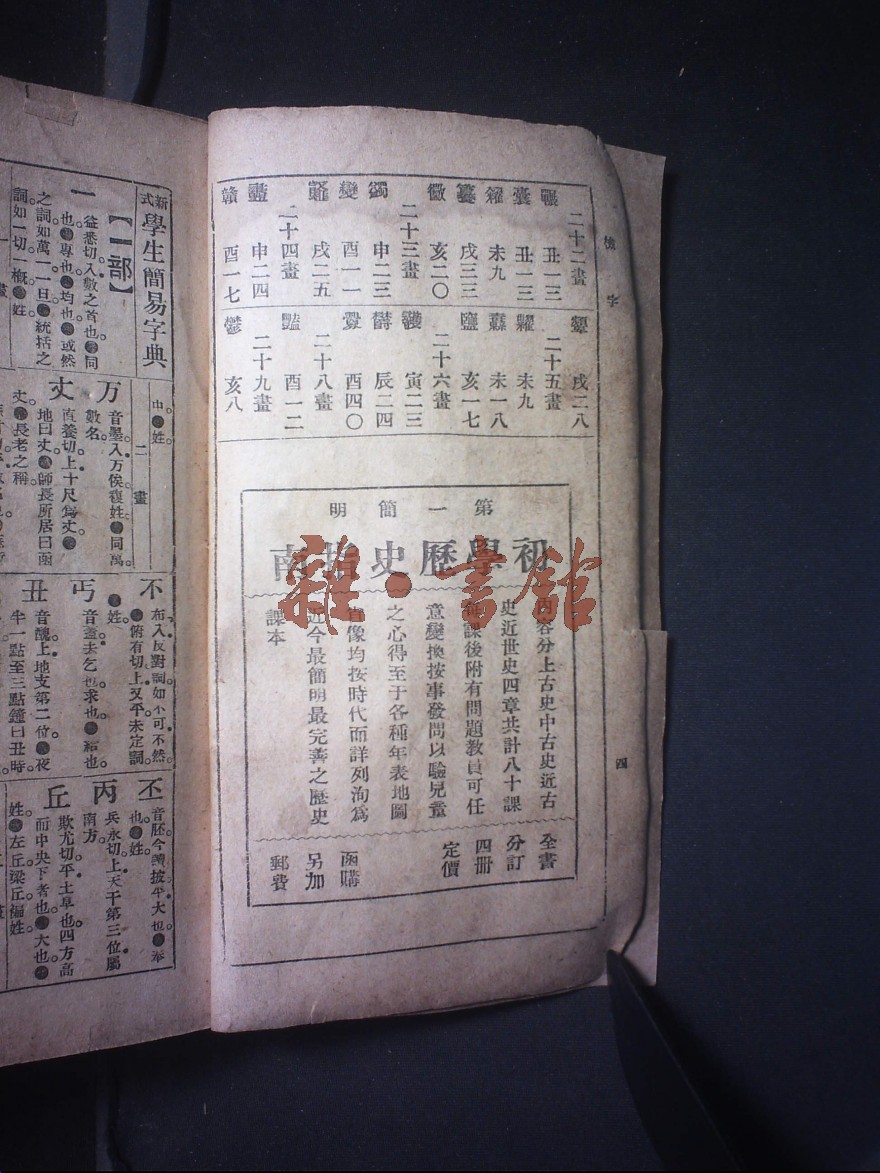 檢字
四
二十二畫
丑一三
囊 丑一三
糴 未九
戌三三
亥二〇
二十三畫
申二三
變 酉一一
戌二五
二十四畫
鹽 申二四
贛 酉一七
戌二八
二十五畫
糶 未九
未一八
亥一七
二十六畫
寅二三
辰二四
酉四〇
二十八畫
豔 酉一二
二十九畫
鬱 亥八
第一簡明
初學歷史指南
內容分上古史中古史近古
史近世史四章共計八十課
每課後附有問題教員可任
意變換按事發問以驗兒童
之心得至于各種年表地圖
肖像均按時代而詳列洵爲
近今最簡明最完善之歷史
課本
全書
分訂
四册
定價
函購
另加
郵費
雜·書館
新式學生簡易字典
【一部】
一
益悉切入數之首也同
也專也均也或然
之詞如萬一一旦統括之
詞如一切一槪姓
姓
二畫
万
音墨入万俟複姓同萬
數名
丈
直養切上十尺爲丈
地曰丈師長所居曰函
丈長老之稱
不
布入反對詞如不可不然
俯有切上又平未定詞
姓
丐
音蓋去乞也求也給也
丑
音醜上地支第二位夜
半一點至三點鐘曰丑時
丕
音胚今讀披平大也奉
也姓
丙
兵永切上天干第三位屬
南方
丘
欺尤切平土阜也四方高
而中央下者也大也
姓左丘梁丘複姓